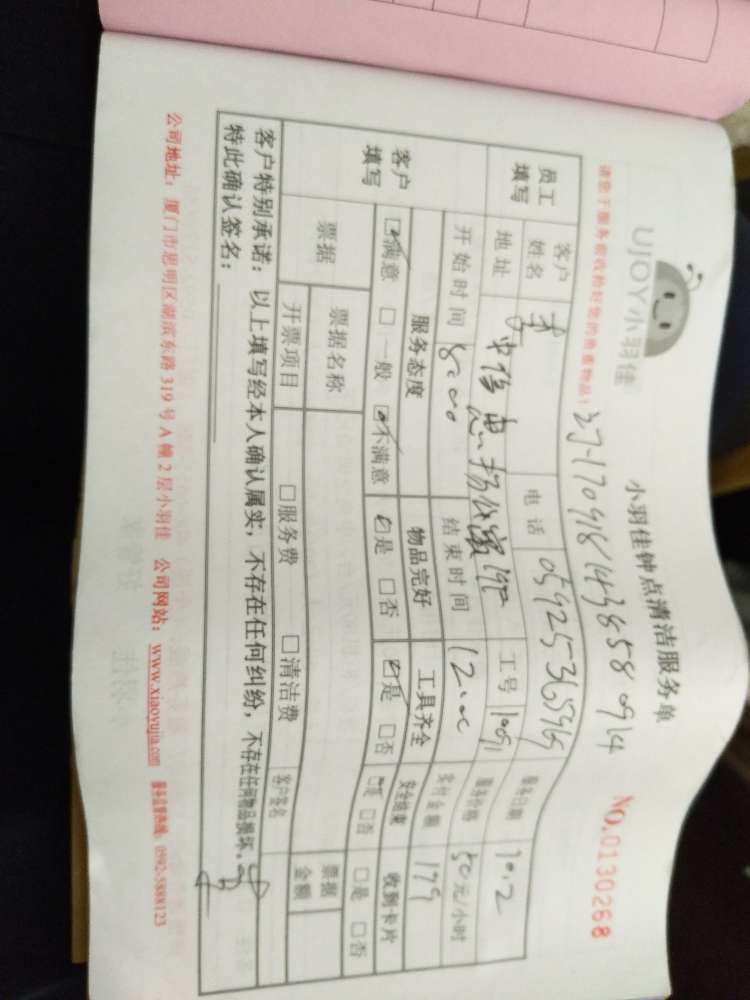 UJOY小羽佳
小羽佳钟点清洁服务单
NO.0130268
请您于服务前收检好您的贵重物品!
员工填写 客户姓名 李 电话 服务日期 10.2
地址 工号 服务价格 50元/小时
开始时间 8:00 结束时间 12:00 实付金额 199
客户填写 服务态度 物品完好 工具齐全 安全结束 收到卡片
☑满意 □一般 ☑不满意 ☑是 □否 ☑是 □否 □是 □否 □是 □否
票据 票据名称 客户签名 票据金额
开票项目 □服务费 □清洁费
客户特别承诺:以上填写经本人确认属实,不存在任何纠纷,不存在任何物品损坏,
特此确认签名:
公司地址:厦门市思明区湖滨东路319号A幢2层小羽佳 公司网站:www.xiaoyujia.com 服务监督热线:0592-5888123